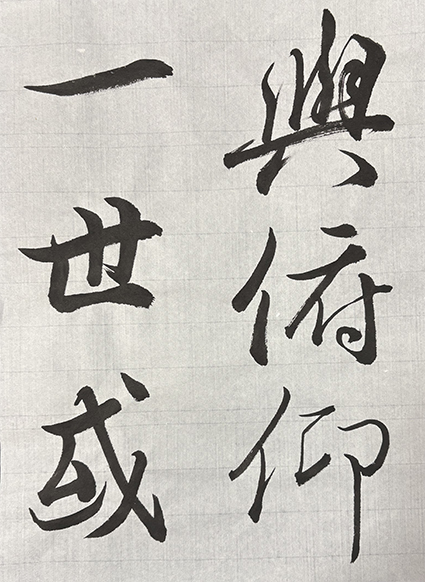 與俯仰
一世或